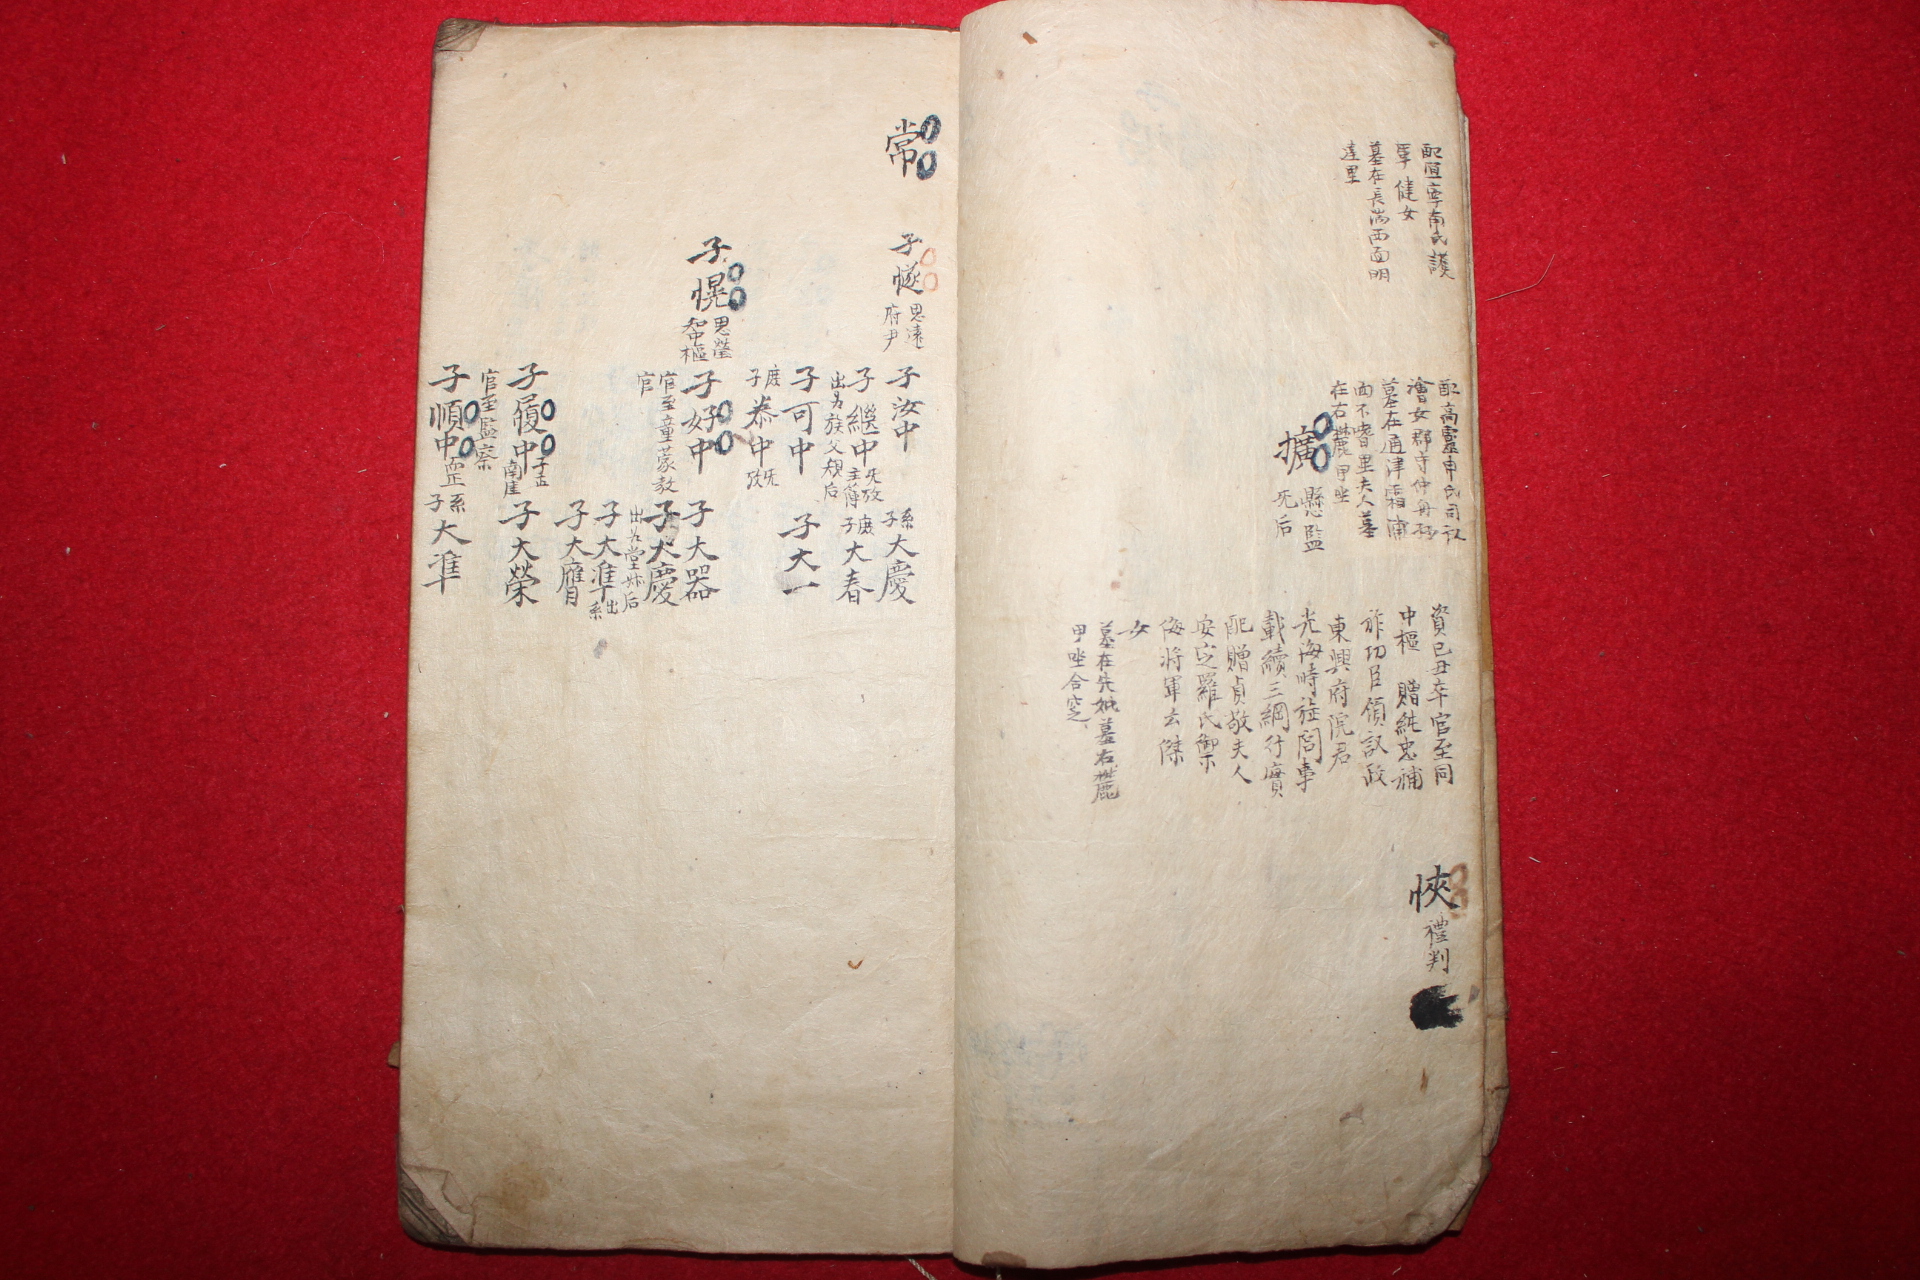 配宜寧南氏護
軍 健女
墓在長湍西面明
達里
配高靈申氏司
澮女郡守仲舟孫
墓在通津霜浦
面不 里夫人墓
在右麓甲坐
擴
懸監
无后
資己丑卒官至同
中樞 贈純忠補
祚功臣領議政
東興府院君
光海時旌閭事
載續三綱行實
配贈貞敬夫人
安定羅氏禦
侮將軍云傑
女
墓在先妣墓右麓
甲坐合窆
悏
禮判
常
子㥞
思遠
府尹
子汝中
系
子大慶
子繼中
无攷
主簿
出為族父規后
庶
子大春
子可中
子大一
庶
子恭中
无攷
子愰
思瑩
知中樞
子好中
官至童蒙教
官
子大器
子大慶
出為堂 后
子大准
出系
子大膺
子履中
子正
南崖
官至監察
子大榮
子順中
正
系
子大準